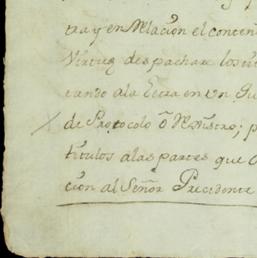 tra y en Relacion el conten
Virtud despachara los tit
tando ala Letra en un
de Protocolo ô Rexistro; p
titulos alas partes que
cion al Señor Precidente